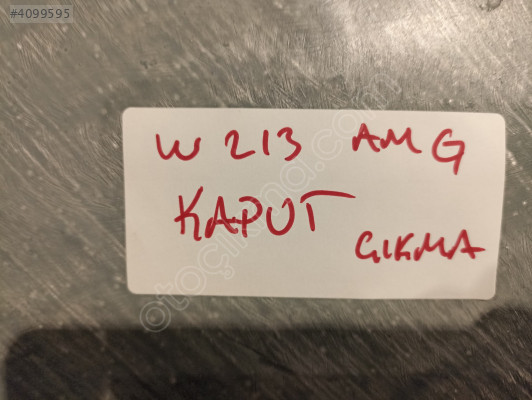 #4099595
W 213 AMG
KAPUT
ÇIKMA
otoçıkma.com